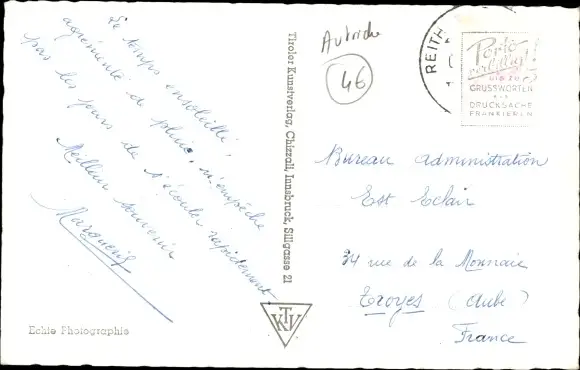 Le temps ensoleillé,
agrémenté de pluie, n'empêche
pas les jours de s'écouler rapidement.
Meilleur souvenir
Tiroler Kunstverlag, Chizzali, Innsbruck, Sillgasse 21
Autriche
46
REITH
Porto
verbilligt!
GRUSSWORTEN
ALS
DRUCKSACHE
FRANKIEREN
Bureau administration
Est Eclair
34 rue de la Monnaie
Troyes (Aube)
France
KTV
Echte Photographie